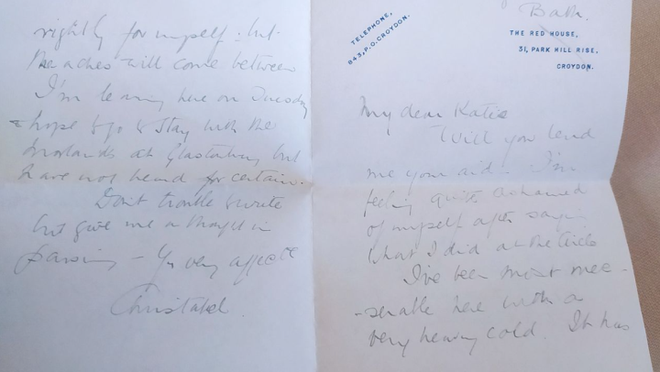 Bath.
TELEPHONE,
843, P.O. CROYDON.
THE RED HOUSE,
51, PARK HILL RISE,
CROYDON.
My dear Katie
Will you lend
me your aid. I'm
feeling quite ashamed
of myself after saying
what I did at the Circle
I've been most mee-
-serable here with a
very heavy cold. It has
rightly for myself: but
the aches will come between
I'm leaving here on Tuesday
& hope to go & stay with the
at Glastonbury but
have not heard for certain.
Don't trouble to write
but give me a thought in
passing - Yr very affecte
Christabel.